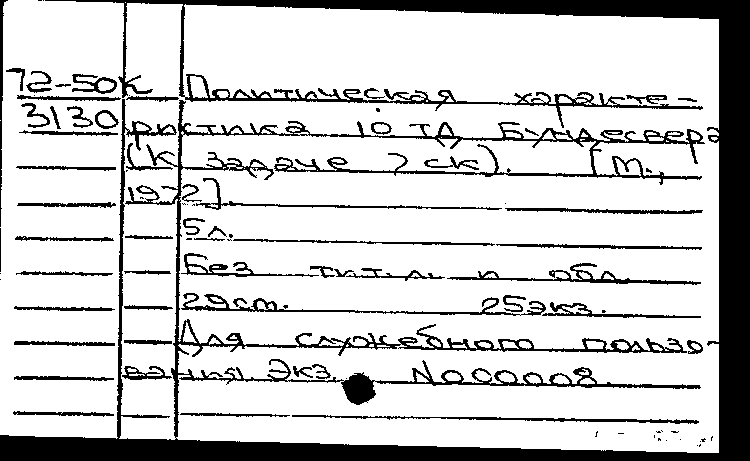 72-50к Политическая характе-
3130 ристика 10 ТД Бундесвера
(К задаче 7 ск). [М.,
1972].
5 л.
Без тит. л. и обл.
29 см. 25 экз.
Для служебного пользо-
вания Экз. N000008.